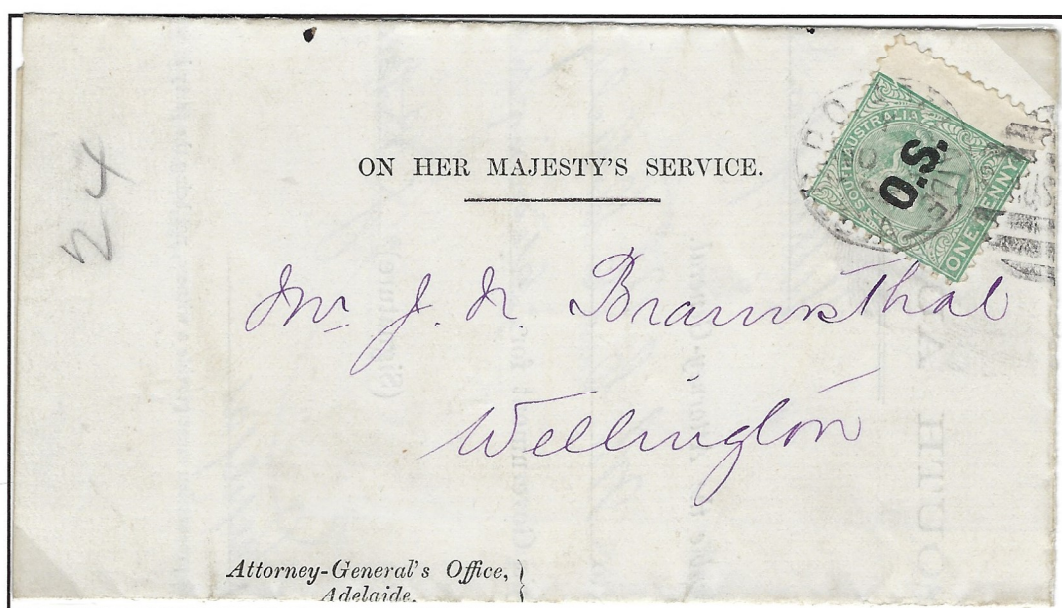 24
ON HER MAJESTY'S SERVICE.
SOUTH AUSTRALIA
O.S.
ONE PENNY
Mr. J. N.
Wellington
Attorney-General's Office,
Adelaide.